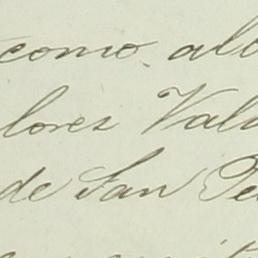 como alb
lores Vald
de San Pe